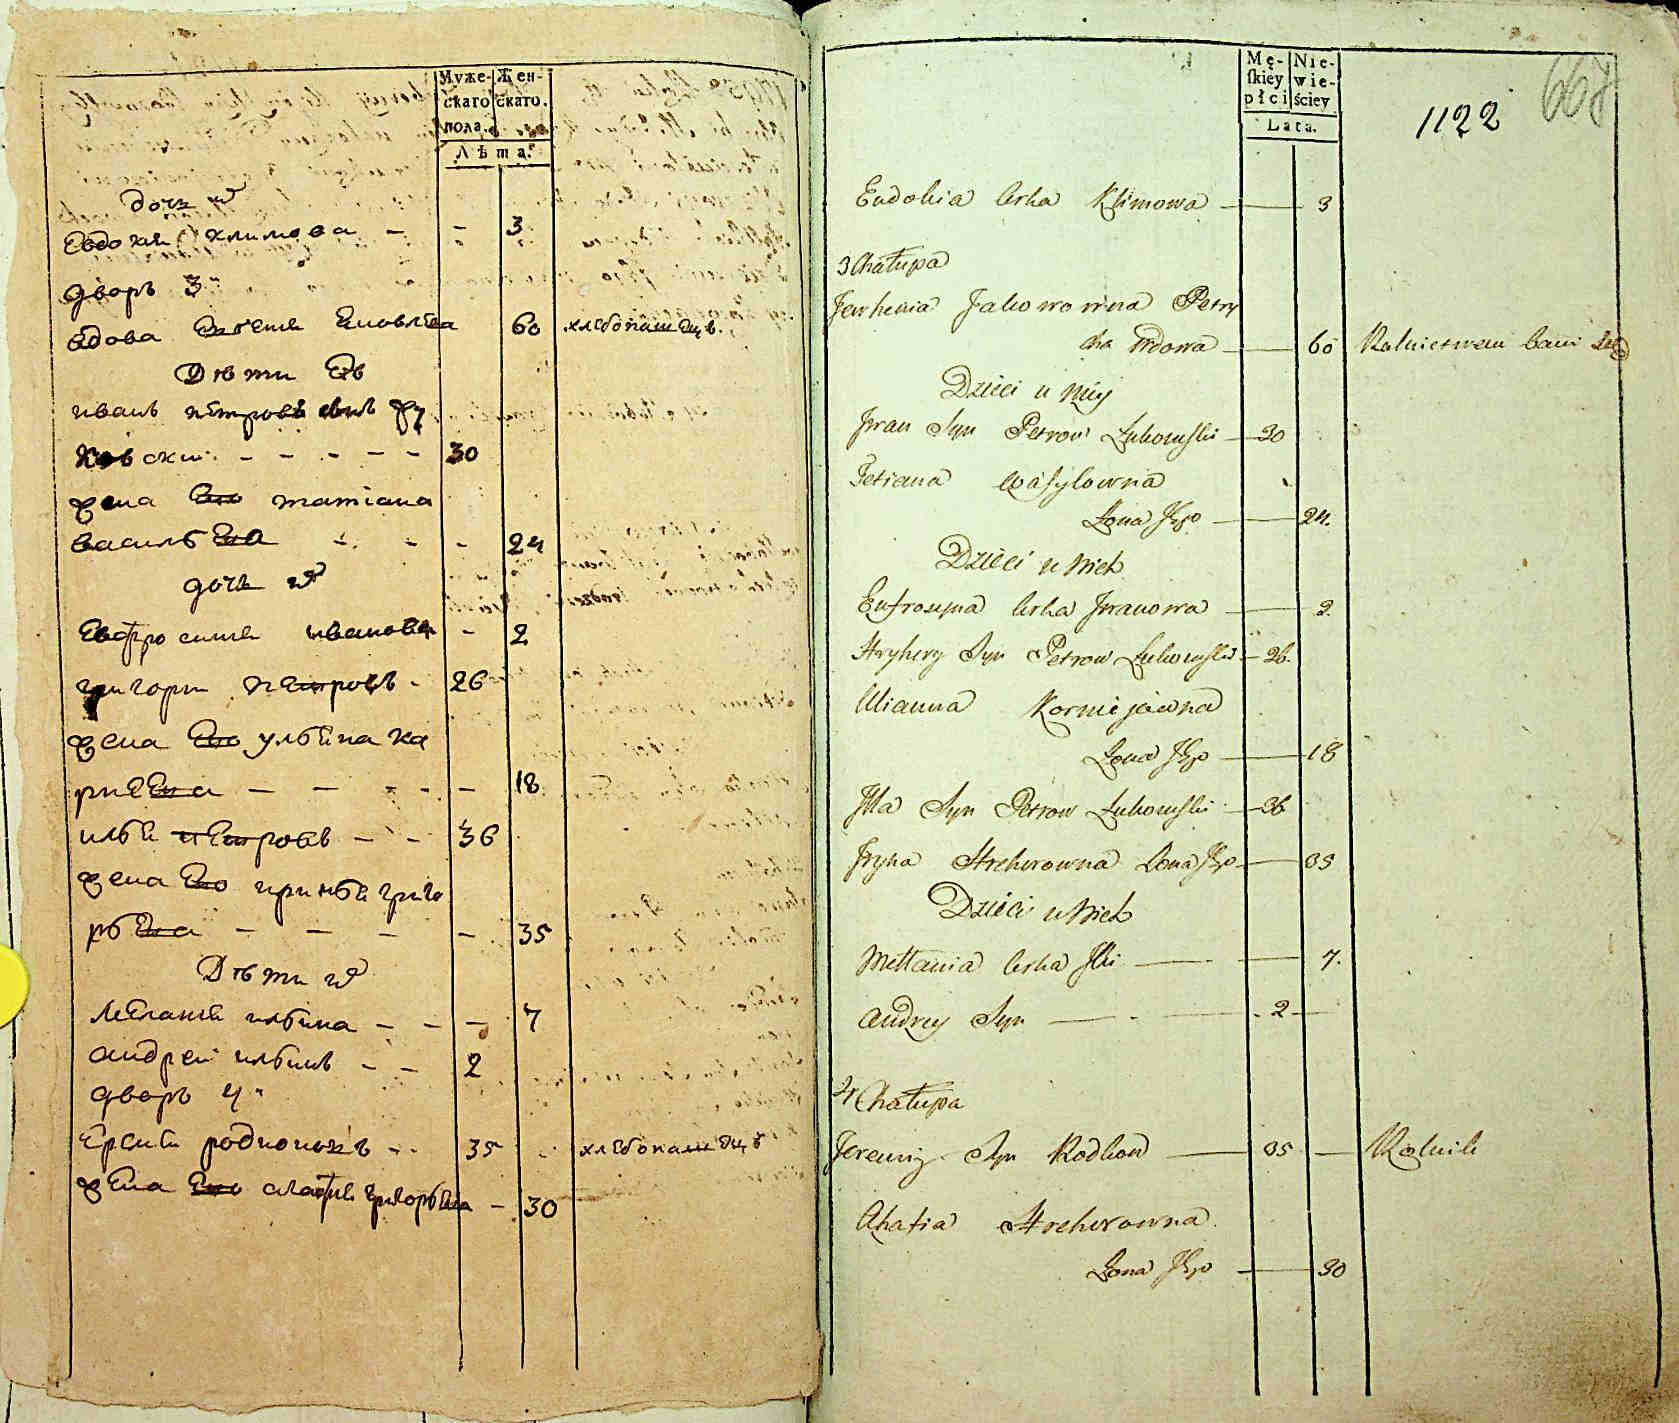 Муже-
скаго
пола.
Жен-
скаго.
Лѣта.
дочь
Евдокия климова - - 3
дворъ 3
вдова Евгения Яковлева 60 хлебопашецъ
Дѣти Ея
иванъ петровъ сынъ Лу
ковски - - - - - 30
жена Ево татиана
васильева - - - 24
дочь их
Евфросиния иванова - 2
григори петровъ - 26
жена Ево ульяна ка
риеева - - - - - 18
илья петровъ - - 36
жена Ево ирина григо
рьева - - - - 35
Дѣти их
Мелания ильина - - - 7
андреи ильинъ - - 2
дворъ 4
Еремѣи родионовъ - - 35 хлебопашецъ
жена Ево агафия григорьева - 30
Mę-
skiey
płci
Nie-
wie-
ściey
Lata.
1122
667
Eudokia Corka Klimowa 3
3 Chałupa
Jewhenia Jakowowna Petry
cha Wdowa 60 Rolnictwem bawi się
Dzieci u niey
Jwan Syn Petrow Lukowski 30
Tetiana Wasylowna
Zona Jego 24.
Dzieci u Nich
Eufrozyna Corka Jwanowa 2
Hryhory Syn Petrow Lukowski 26.
Ulianna Korniejewna
Zona Jego 18
Jlla Syn Petrow Lukowski 36
Jryna Hrehorowna Zona Jego 35
Dzieci u Nich
Mellania Corka Jlli 7.
Andrey Syn 2
4 Chałupa
Jeremiy Syn Rodkow 35 Rolnik
Ahafia Hrehorowna
Zona Jego 30